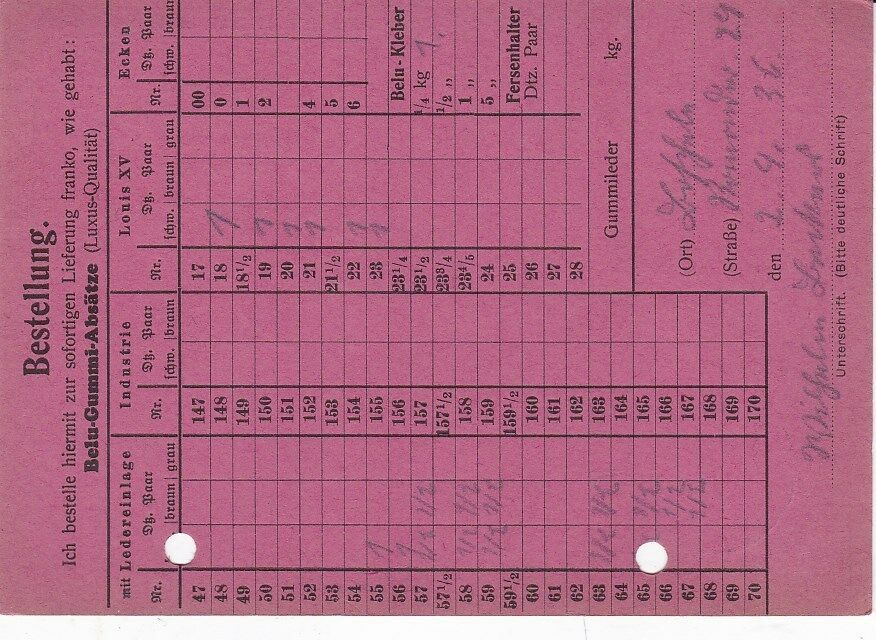 Bestellung.
Ich bestelle hiermit zur sofortigen Lieferung franko, wie gehabt:
Belu-Gummi-Absätze (Luxus-Qualität)
mit Ledereinlage
Nr. Dtz. Paar
braun grau
47
48
49
50
51
52
53
54
55 1
56 1
57 1/2 1/2
57 1/2
58 1/2 1/2
59 1/2 1/2
59 1/2
60
61
62
63 1/2 1/2
64
65 1/2
66 1/2
67 1/2
68
69
70
Industrie
Nr. Dtz. Paar
schw. braun
147
148
149
150
151
152
153
154
155
156
157
157 1/2
158
159
159 1/2
160
161
162
163
164
165
166
167
168
169
170
Louis XV
Nr. Dtz. Paar
schw. braun grau
17
18 1
18 1/2
19 1
20 1
21 1
21 1/2
22 1
23 1
23 1/4
23 1/2
23 3/4
23 4/5
24
25
26
27
28
Ecken
Nr. Dtz. Paar
schw. braun
00
0
1
2
4
5
6
Belu-Kleber
1/4 kg 1.
1/2 „
1 „
5 „
Fersenhalter
Dtz. Paar
Gummileder kg.
(Ort)
(Straße) 29
den 2. 9. 36
Unterschrift. (Bitte deutliche Schrift)